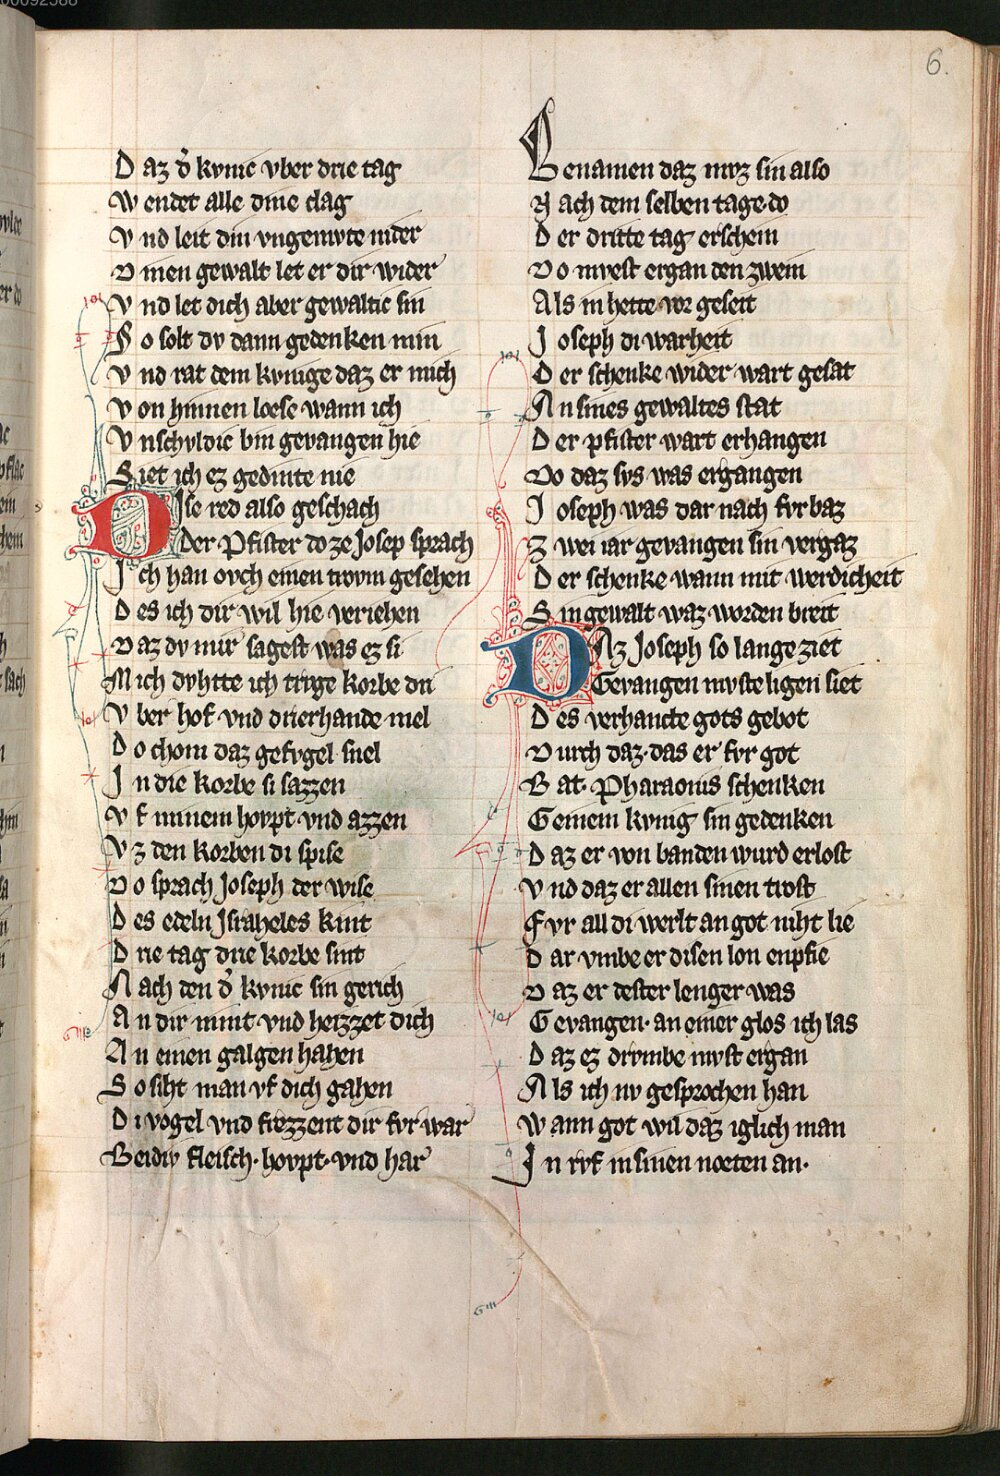 6.
Daz d͛ kvnic vber drie tag
Wendet alle dine clag
Vnd leit din vngemvte nider
Dinen gewalt let er dir wider
Vnd let dich aber gewaltic sin
So solt dv dann gedenken min
Vnd rat dem kvnige daz er mich
Von hinnen loese wann ich
Vnschvldic bin gevangen hie
Siet ich ez gedinte nie
Dise red also geschach
Der Pfister do ze Josep sprach
Ich han ovch einen trovm gesehen
Des ich dir wil hie veriehen
Daz dv mir sagest was ez si
Mich dvhtte ich trvge korbe dri
Vber hof vnd drierhande mel
Do chom daz gefvgel snel
In die korbe si sazzen
Vf minem hovpt vnd azzen
Vz den korben di spise
Do sprach Joseph der wise
Des edeln Jsraheles kint
Drie tag drie korbe sint
Nach den d͛ kvnic sin gerich
An dir nimt vnd heizzet dich
An einen galgen hahen
So siht man vf dich gahen
Di vogel vnd frezzent dir fvr war
Beidiv fleisch· hovpt· vnd har
Benamen daz mvz sin also
Nach dem selben tage do
Der dritte tag erschein
Do mvest ergan den zwein
Als in hette vor geseit
Joseph di warheit
Der schenke wider wart gesat
An sines gewaltes stat
Der pfister wart erhangen
Do daz svs was ergangen
Joseph was dar nach fvrbaz
Zwei iar gevangen sin vergaz
Der schenke wann mit werdicheit
Sin gewalt waz worden breit
Daz Joseph so lange ziet
Gevangen mvste ligen siet
Des verhancte gots gebot
Durch daz· das er fvr got
Bat· Pharaonis schenken
Geinem kvnig sin gedenken
Daz er von banden wurd erlost
Vnd daz er allen sinen trost
Fvr all di werlt an got niht lie
Dar vmbe er disen lon enpfie
Daz er dester lenger was
Gevangen· an einer glos ich las
Daz ez drvmbe mvst ergan
Als ich nv gesprochen han
Wann got wil daz iglich man
In rvf in sinen noeten an·